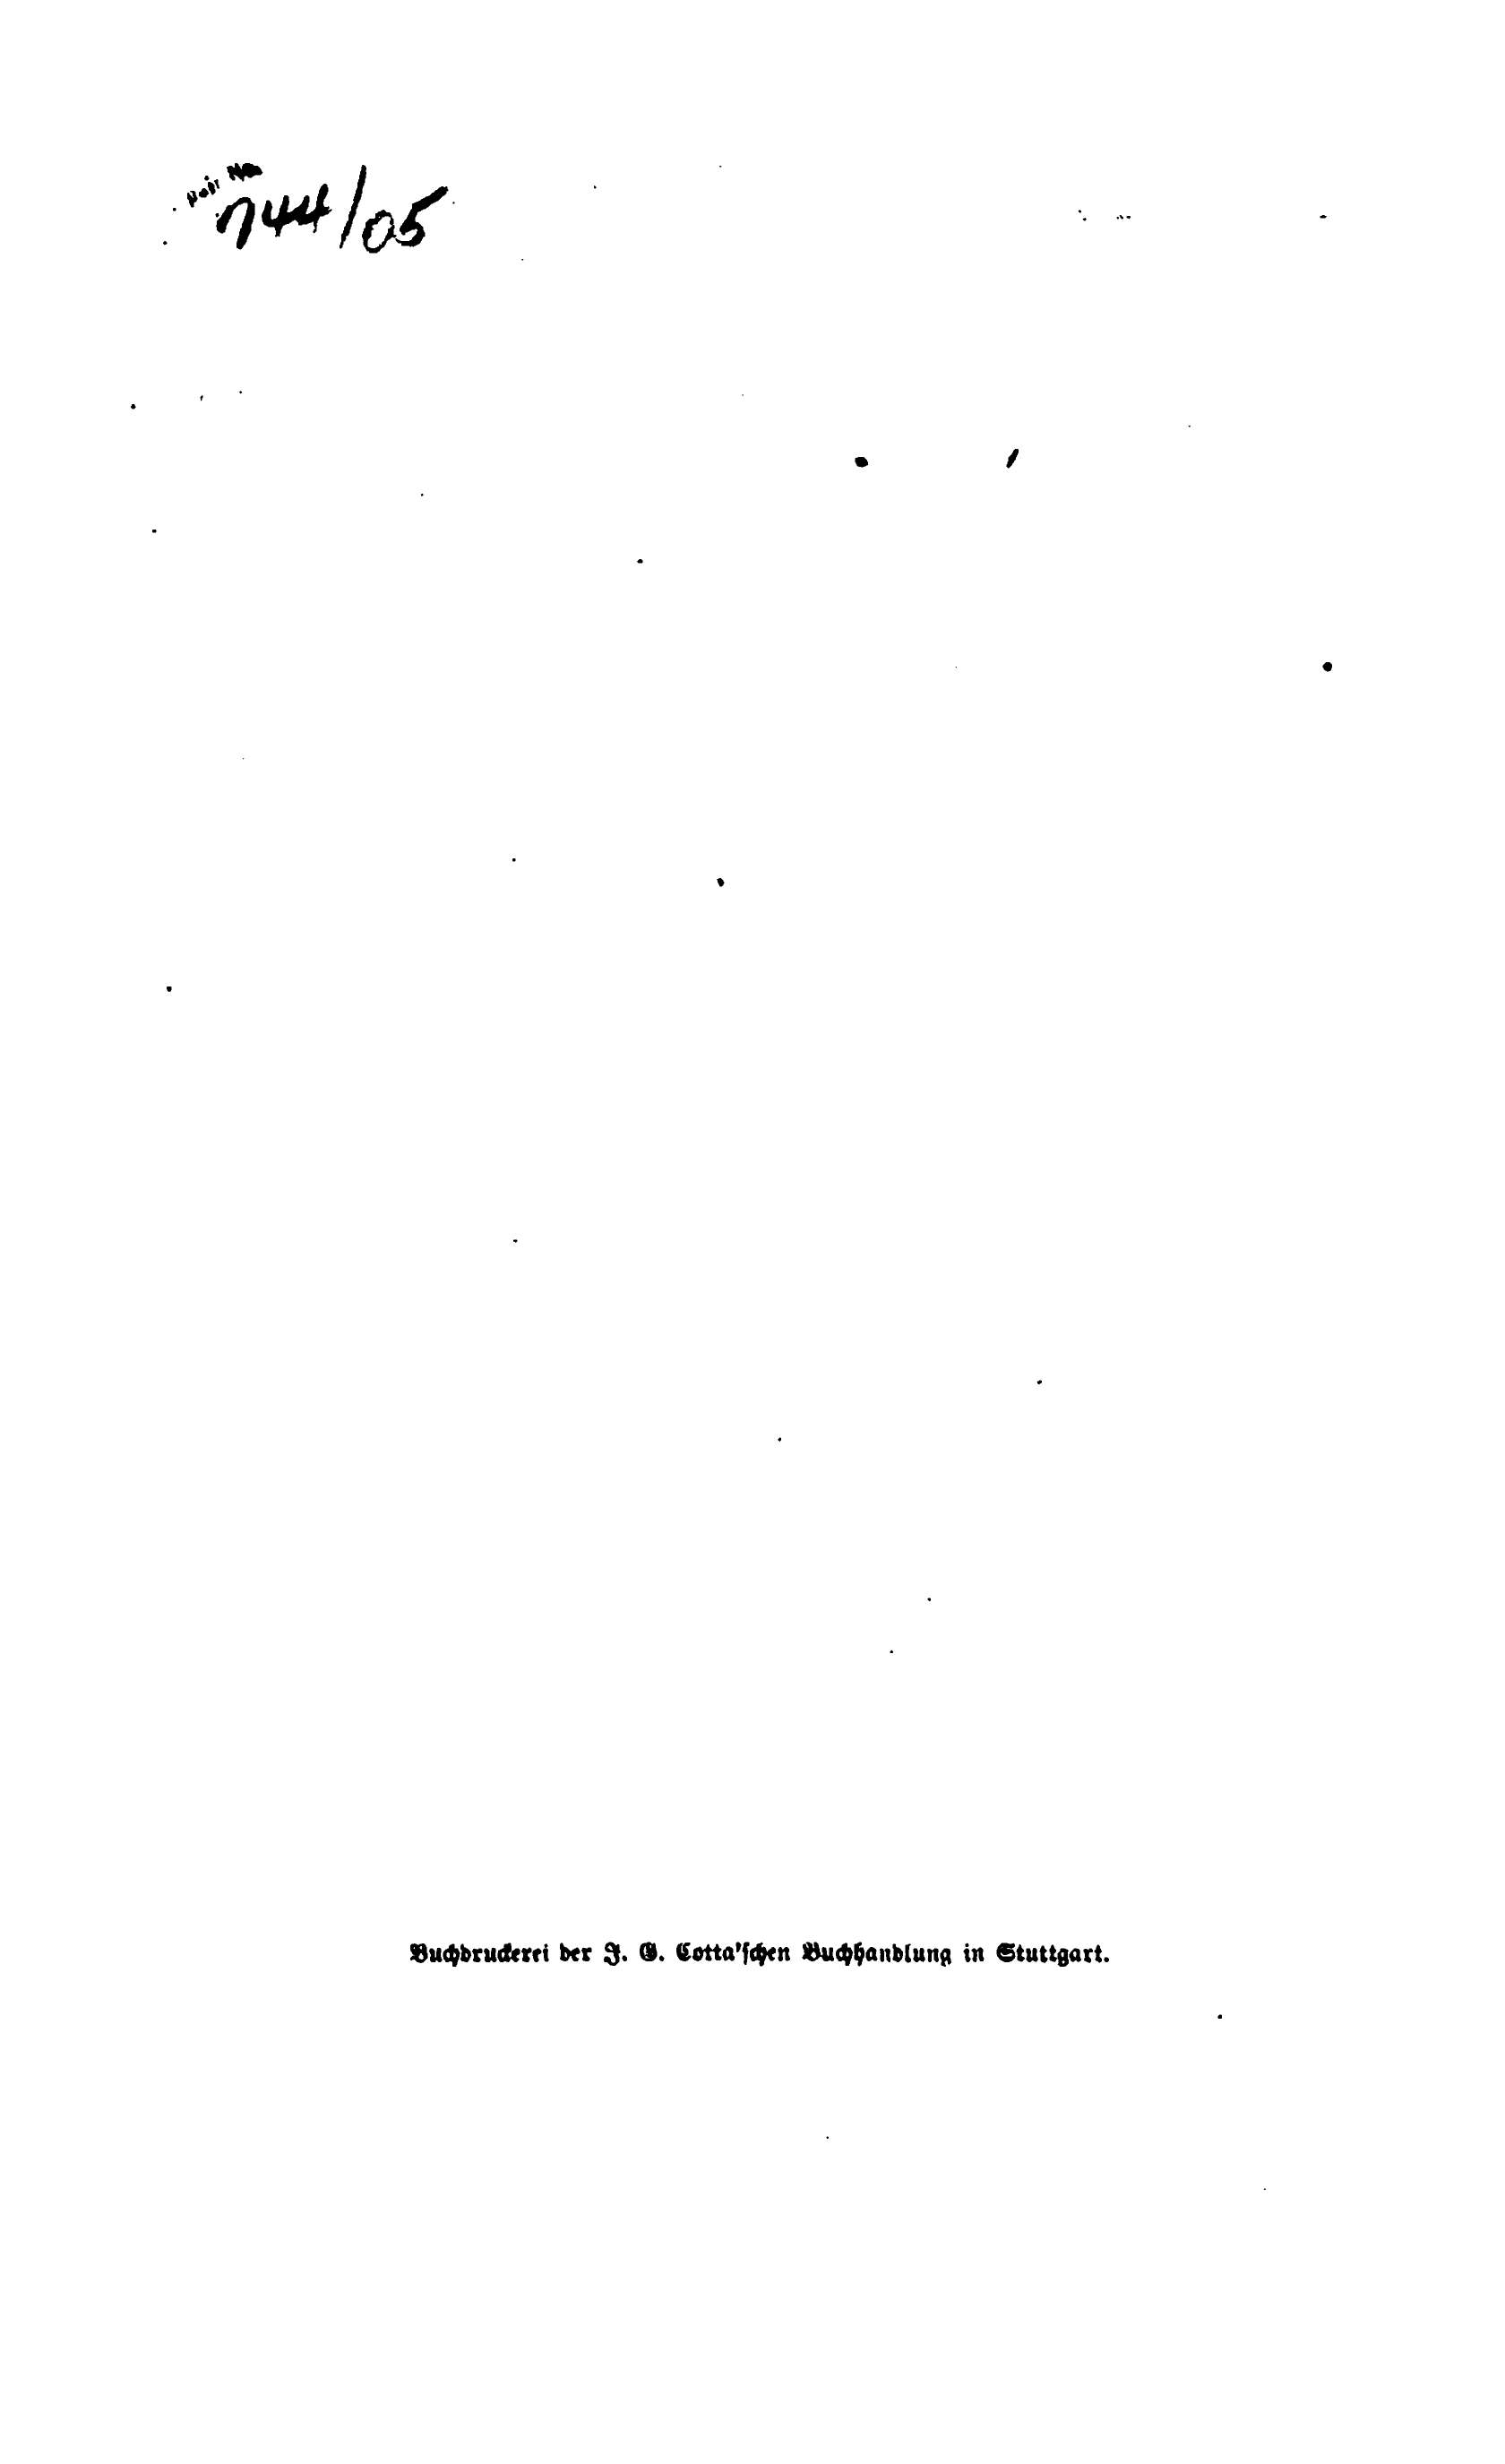 744/05
Buchdruckerei der J. G. Cotta'schen Buchhandlung in Stuttgart.